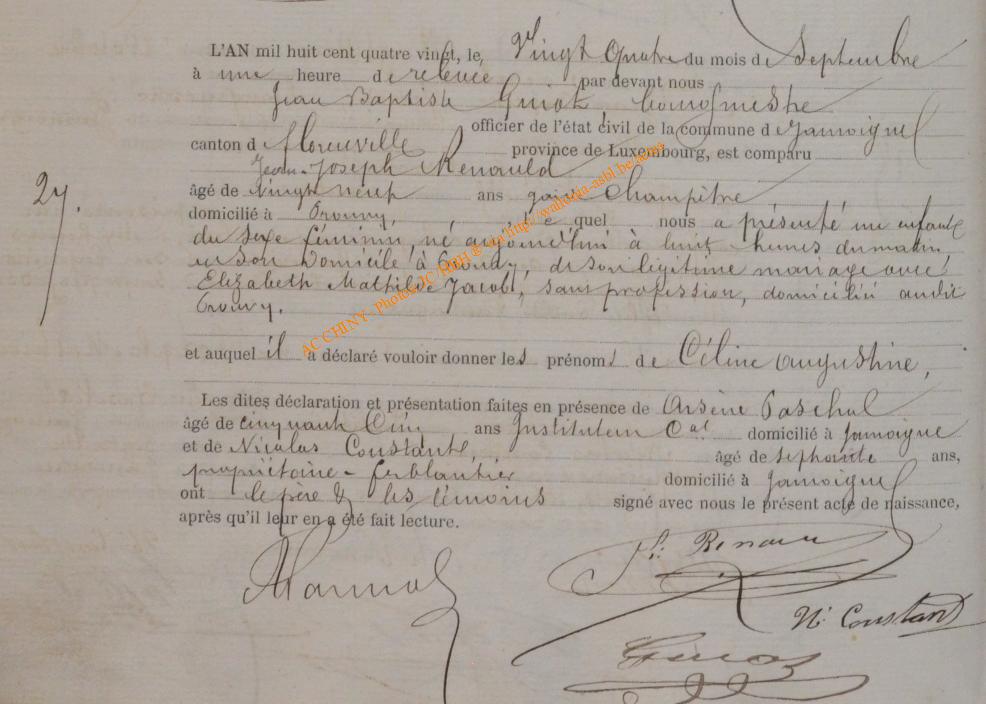 L'AN mil huit cent quatre vingt, le, Vingt Quatre du mois de Septembre
à une heure de relevée par devant nous
Jean Baptiste Guiot, bourgmestre
officier de l'état civil de la commune d Jamoigne
canton d Florenville province de Luxembourg, est comparu
Jean-Joseph Renauld
27.
âgé de vingt neuf ans garde Champêtre
domicilié à Prouvy, le quel nous a présenté un enfant
du sexe féminin, né aujourd'hui à huit heures du matin
en son domicile à Prouvy, de son légitime mariage avec
Elizabeth Mathilde Jacob, sans profession, domicilié audit
Prouvy.
et auquel il a déclaré vouloir donner les prénoms de Céline Augustine,
Les dites déclaration et présentation faites en présence de Arsène Paschal
âgé de cinquante Cinq ans Instituteur Cal domicilié à Jamoigne
et de Nicolas Constant, âgé de septante ans,
propriétaire-ferblantier domicilié à Jamoigne
ont le père & les témoins signé avec nous le présent acte de naissance,
après qu'il leur en a été fait lecture.
J. Renau
N. Constant
Guiot
AC CHINY - Photos IC / HBH © via http://wallonia-asbl.be/actes